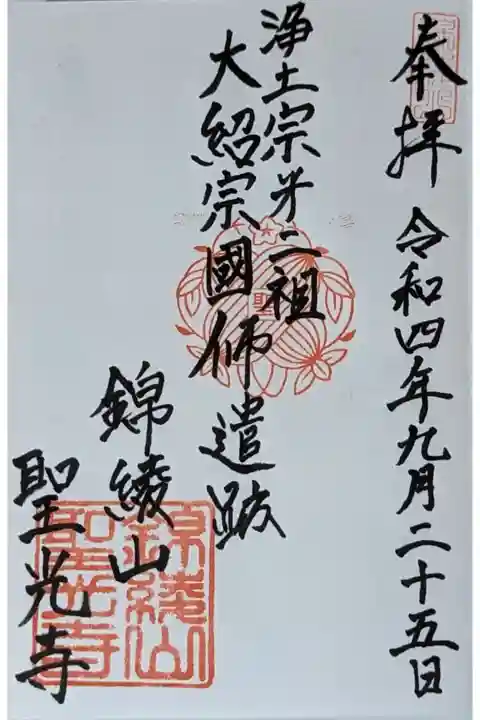 奉拝 令和四年九月二十五日
浄土宗㐧二祖
大紹宗國師遺跡
錦綾山
聖光寺
聖
錦綾山
聖光寺